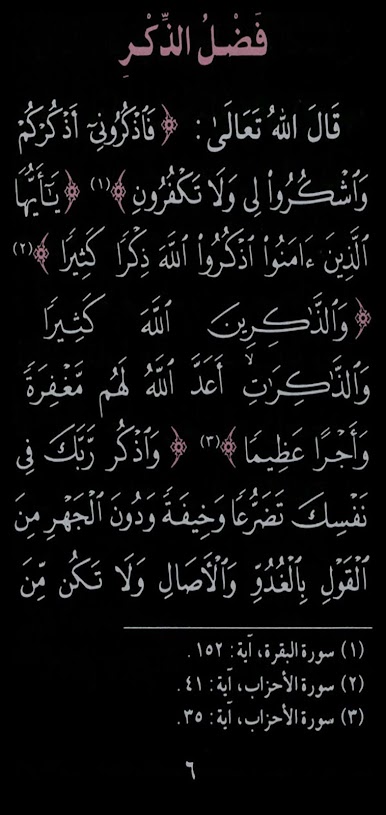 فَضْلُ الذِّكْرِ
قَالَ اللهُ تَعَالَىٰ: ﴿فَٱذْكُرُونِىٓ أَذْكُرْكُمْ
وَٱشْكُرُوا۟ لِى وَلَا تَكْفُرُونِ﴾(١) ﴿يَـٰٓأَيُّهَا
ٱلَّذِينَ ءَامَنُوا۟ ٱذْكُرُوا۟ ٱللَّهَ ذِكْرًا كَثِيرًا﴾(٢)
﴿وَٱلذَّٰكِرِينَ ٱللَّهَ كَثِيرًا
وَٱلذَّٰكِرَٰتِ أَعَدَّ ٱللَّهُ لَهُم مَّغْفِرَةً
وَأَجْرًا عَظِيمًا﴾(٣) ﴿وَٱذْكُر رَّبَّكَ فِى
نَفْسِكَ تَضَرُّعًا وَخِيفَةً وَدُونَ ٱلْجَهْرِ مِنَ
ٱلْقَوْلِ بِٱلْغُدُوِّ وَٱلْأَصَالِ وَلَا تَكُن مِّنَ
(١) سورة البقرة، آية: ١٥٢.
(٢) سورة الأحزاب، آية: ٤١.
(٣) سورة الأحزاب، آية: ٣٥.
٦